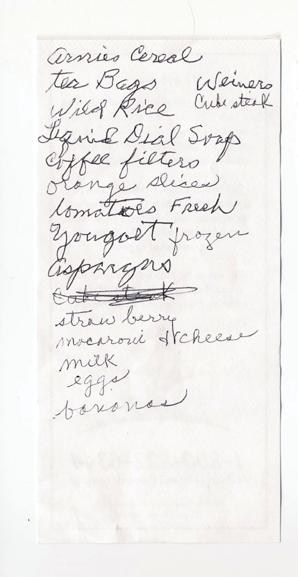 Arnies Cereal
tea Bags
Weiners
Cube steak
Wild Rice
Liquid Dial Soap
Coffee filters
orange slices
tomatoes Fresh
Yougolt frozen
Asparagus
Cube steak
straw berry
macaroni & cheese
milk
eggs
bananas